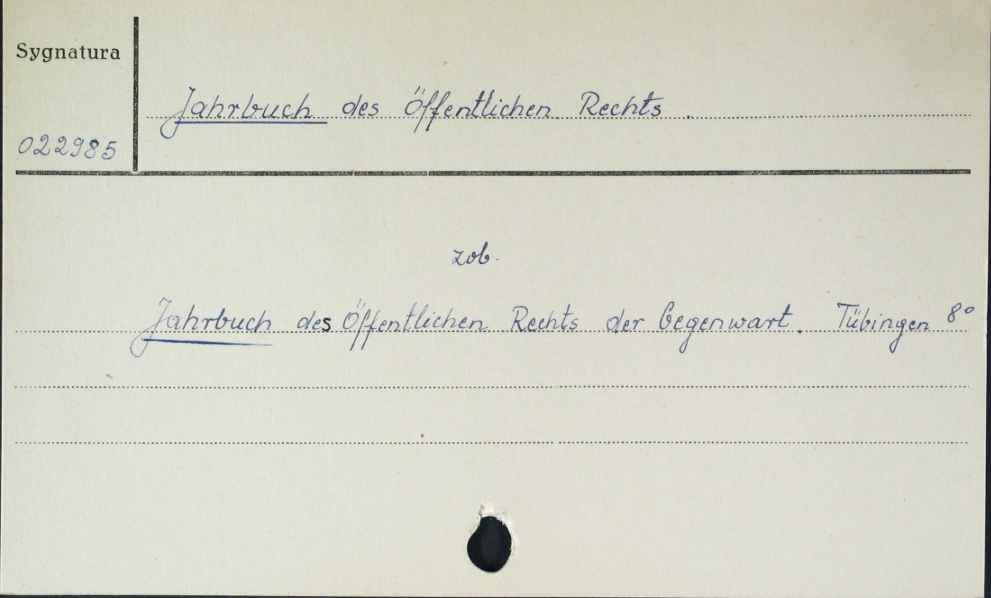 Sygnatura
Jahrbuch des Öffentlichen Rechts.
022985
zob.
Jahrbuch des Öffentlichen Rechts der Gegenwart. Tübingen 8°